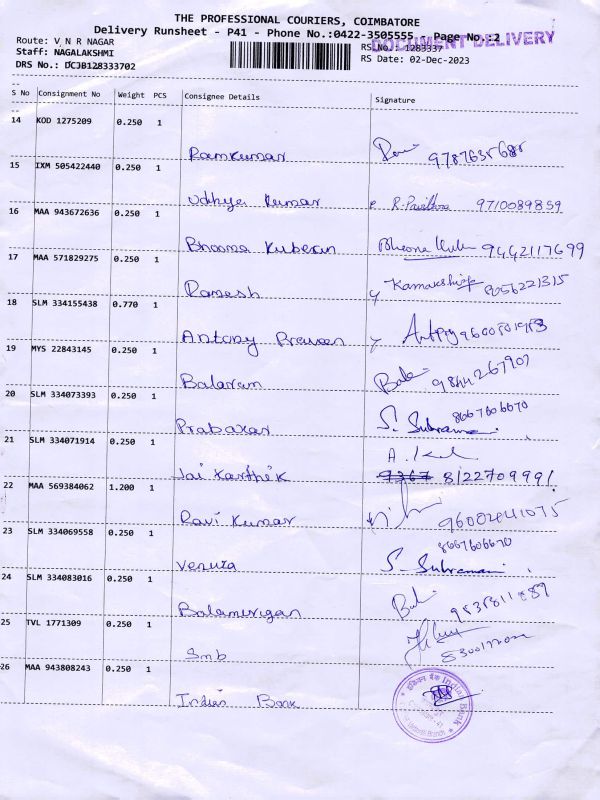 THE PROFESSIONAL COURIERS, COIMBATORE
Delivery Runsheet - P41 - Phone No.:0422-3505555 - Page No.:2
DOCUMENT DELIVERY
Route: V N R NAGAR
RS No.: 1283337
Staff: NAGALAKSHMI
RS Date: 02-Dec-2023
DRS No.: DCJB128333702
S No Consignment No Weight PCS Consignee Details Signature
14 KOD 1275209 0.250 1
Ramkumar 9787635688
15 IXM 505422440 0.250 1
Udhya Kumar R. Pavithra 9710089859
16 MAA 943672636 0.250 1
Bhooma Kuberan 9442117699
17 MAA 571829275 0.250 1
Ramesh Kamakshi 9056221315
18 SLM 334155438 0.770 1
Antony Praveen
19 MYS 22843145 0.250 1
Balaram 9844267907
20 SLM 334073393 0.250 1
8667606670
Prabakar S. Subramani
21 SLM 334071914 0.250 1
Jai Karthik 8122709991
22 MAA 569384062 1.200 1
Ravi Kumar 96002041075
23 SLM 334069558 0.250 1
8667606670
S. Subramani
24 SLM 334083016 0.250 1
Balamurigan
25 TVL 1771309 0.250 1
Smb
26 MAA 943808243 0.250 1
Indian Bank
इंडियन बैंक Indian Bank